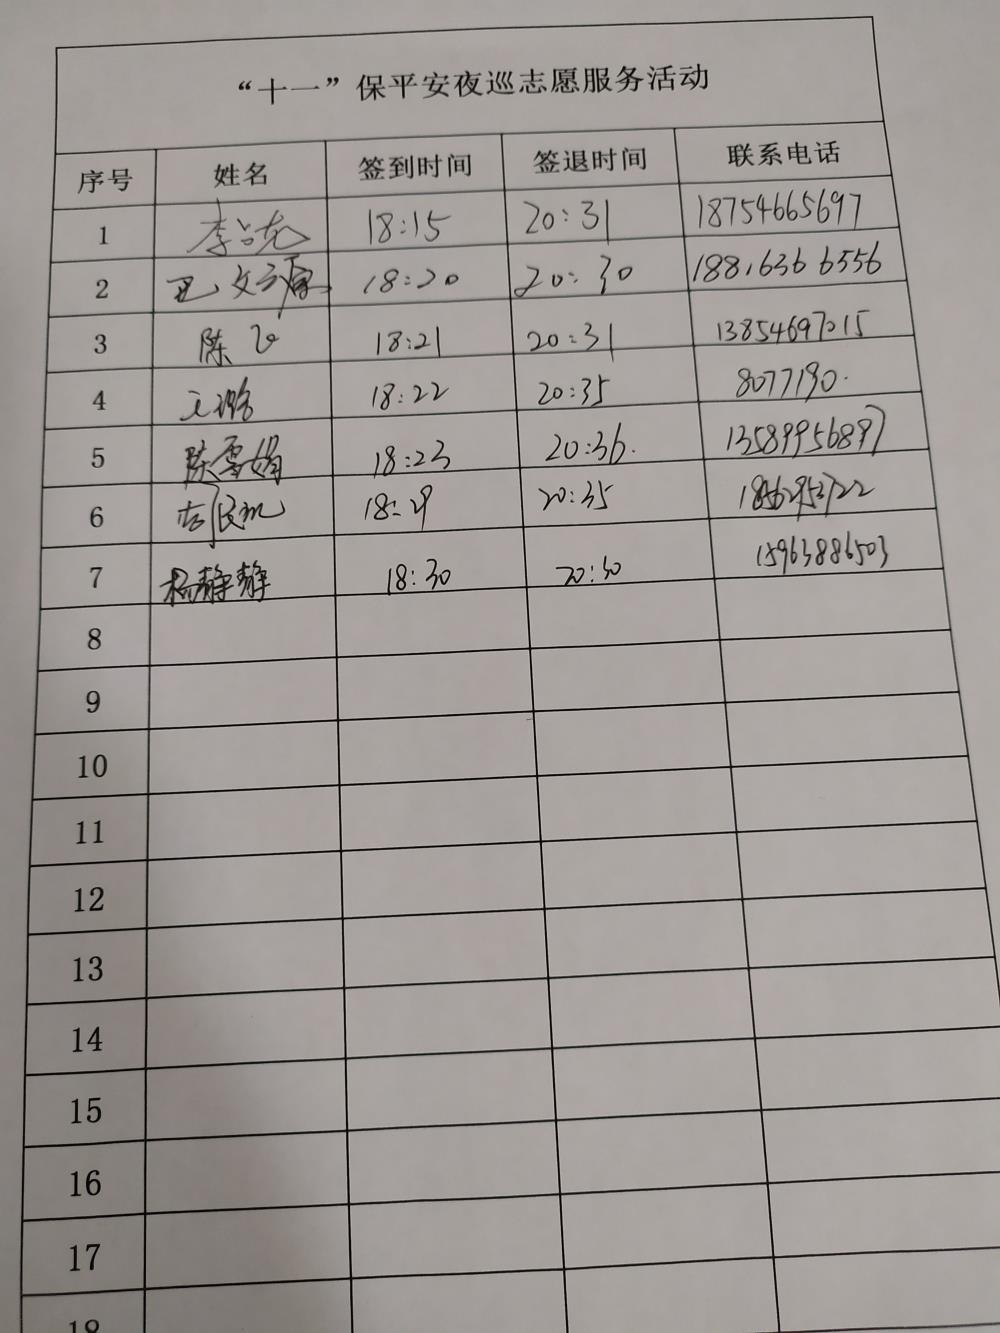 “十一”保平安夜巡志愿服务活动
序号 姓名 签到时间 签退时间 联系电话
1 18:15 20:31 18754665697
2 18:20 20:30 18816366556
3 陈飞 18:21 20:31 13854697215
4 王璐 18:22 20:35 8077190.
5 陈雪娟 18:23 20:36. 13589956897
6 18:29 20:35
7 杨静静 18:30 20:30 15963886503
8
9
10
11
12
13
14
15
16
17
18